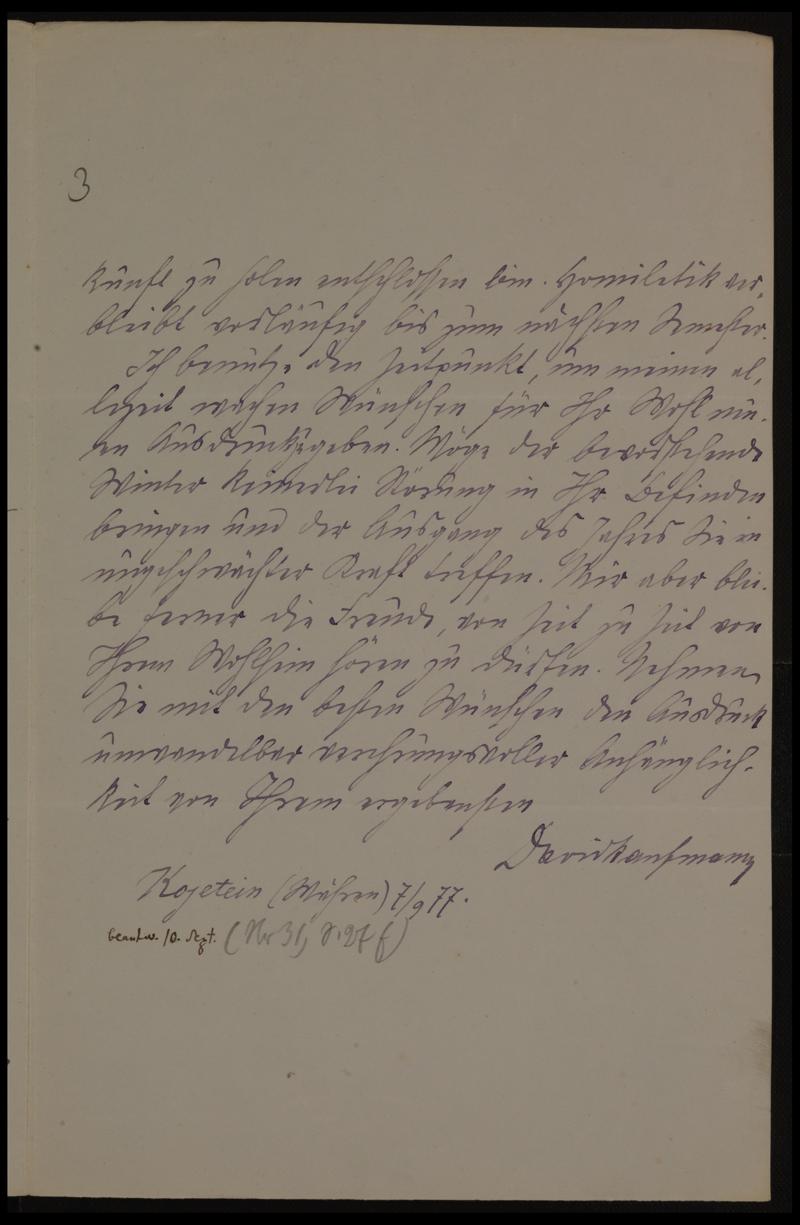 3
kunft zu holen entschlossen bin. Homiletik ver-
bleibt vorläufig bis zum nächsten Semester.
Ich benutze den Zeitpunkt, um meinen al-
lezeit wachen Wünschen für Ihr Wohl ein-
en Ausdruck zu geben. Möge der bevorstehende
Winter keinerlei Störung in Ihr Befinden
bringen und der Ausgang des Jahres Sie in
ungeschwächter Kraft treffen. Mir aber blei-
be ferner die Freude, von Zeit zu Zeit von
Ihrem Wohlsein hören zu dürfen. Nehmen
Sie mit den besten Wünschen den Ausdruck
unwandelbar verehrungsvoller Anhänglich-
keit von Ihrem ergebensten
David Kaufmann
Kojetein (Mähren) 7/9 77.
beantw. 10. Sept. (Nr 31, S. 27 f)